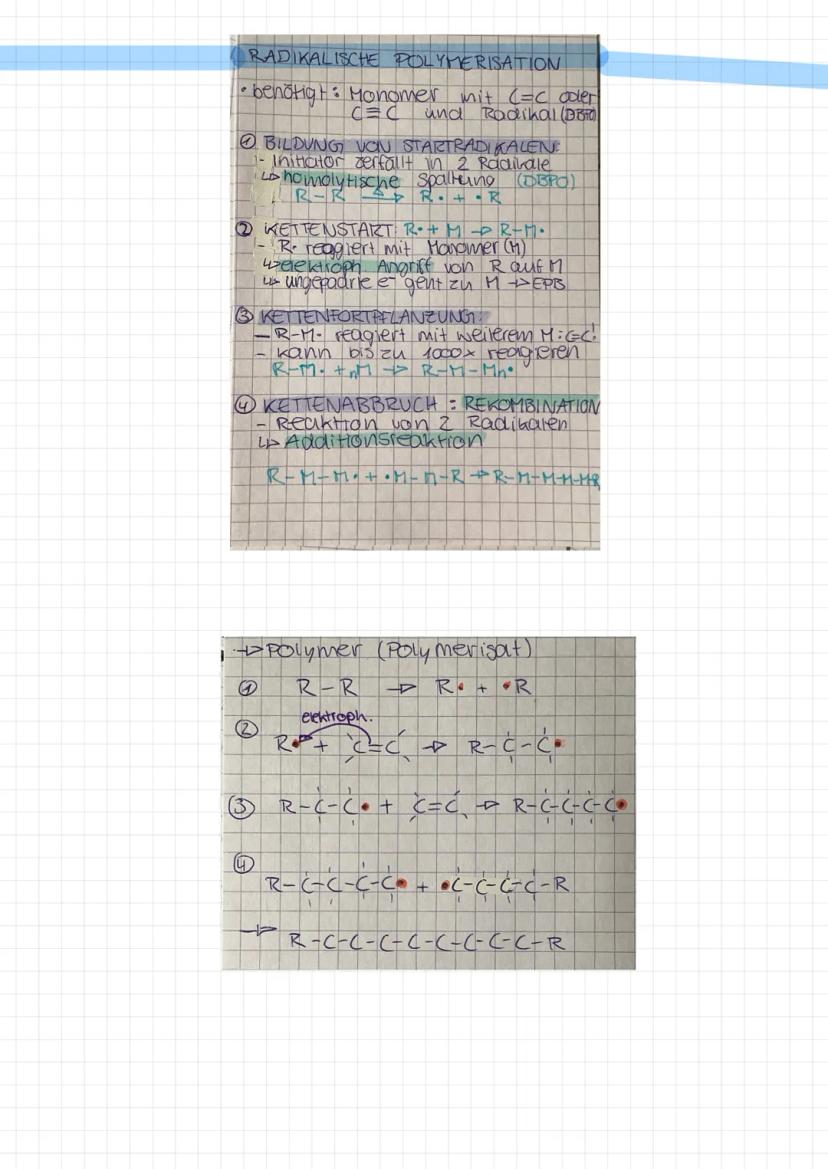 RADIKALISCHE POLYMERISATION
• benötigt: Monomer mit C=C oder
C≡C und Radikal (DBPO)
① BILDUNG VON STARTRADIKALEN:
- Initiator zerfällt in 2 Radikale
↳ homolytische Spaltung (DBPO)
R-R →Δ R• + •R
② KETTENSTART: R• + M → R-M•
- R• reagiert mit Monomer (M)
↳ elektroph. Angriff von R auf M
↳ ungepaarte e⁻ geht zu M → EPB
③ KETTENFORTPFLANZUNG:
- R-M• reagiert mit weiterem M: C=C!
- kann bis zu 1000x reagieren
R-M• + nM → R-M-Mn•
④ KETTENABBRUCH: REKOMBINATION
- Reaktion von 2 Radikalen
↳ Additionsreaktion
R-M-M• + •M-M-R → R-M-M-M-M-R
→ Polymer (Polymerisat)
① R-R → R• + •R
elektroph.
② R• + C=C → R-C-C•
③ R-C-C• + C=C → R-C-C-C-C•
④
R-C-C-C-C• + •C-C-C-C-R
→ R-C-C-C-C-C-C-C-C-R